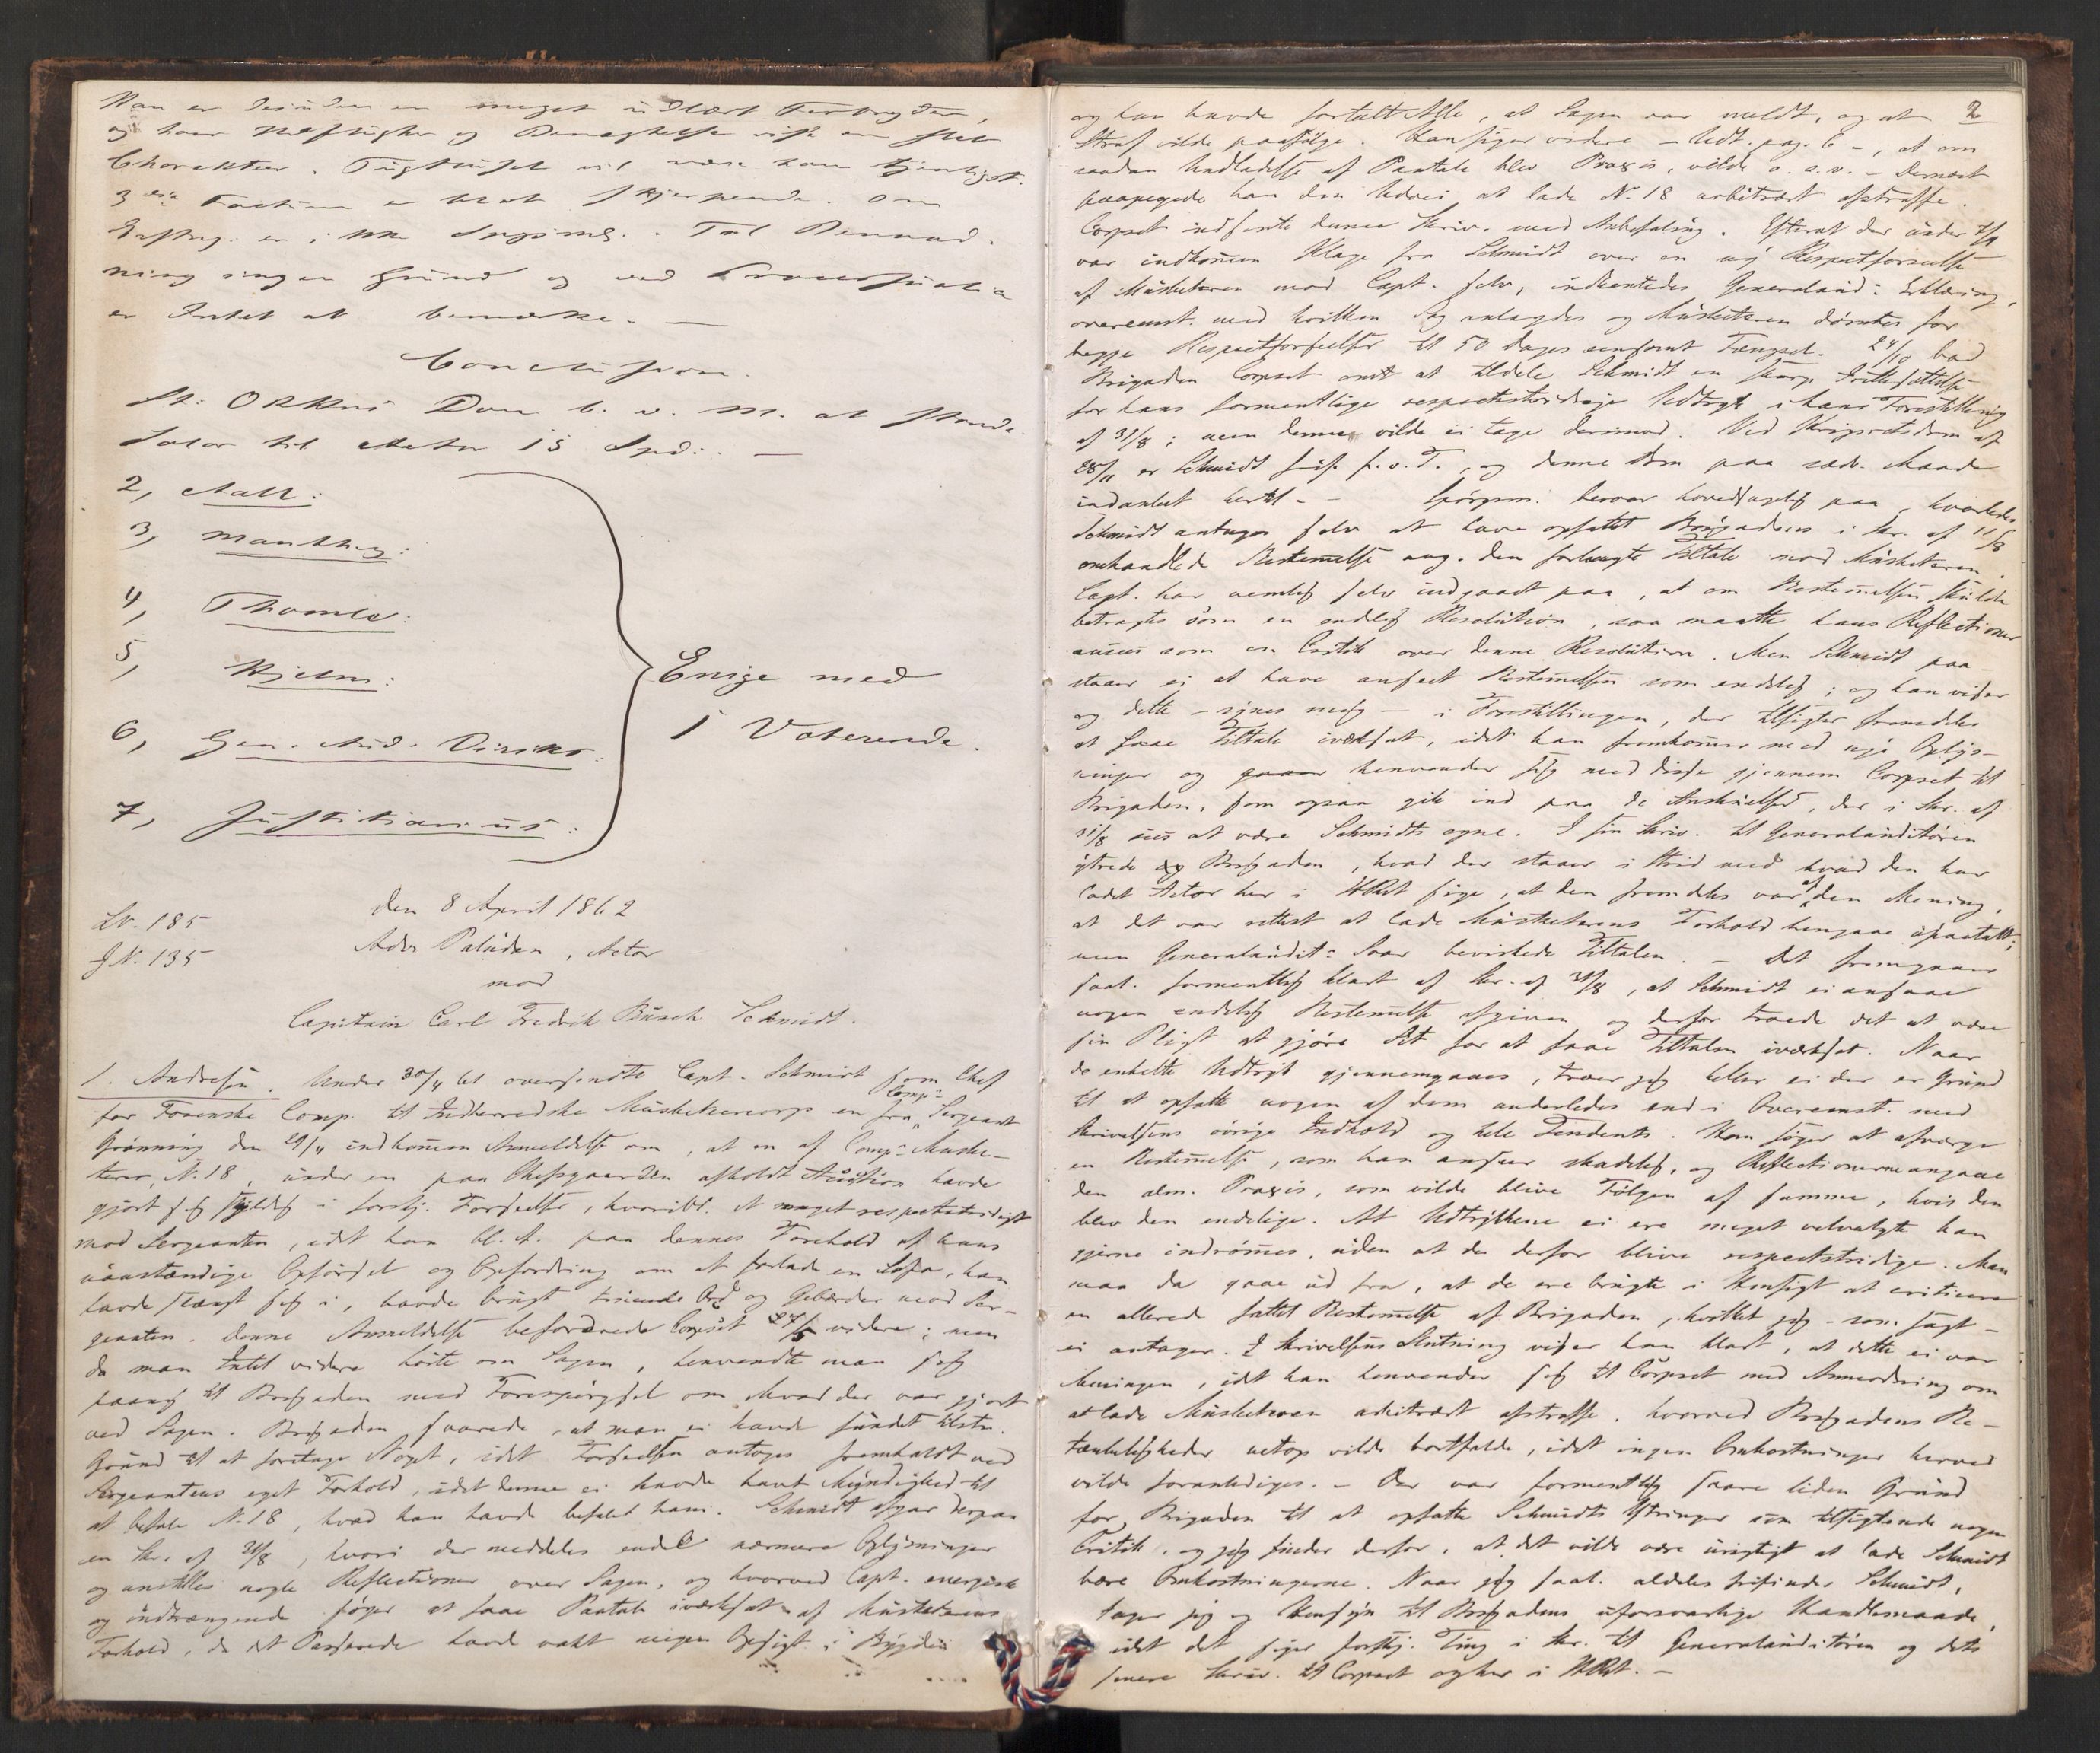 Han er desuden en meget udlært Forbryder,
og hans Heftighed og Benægtelse vise en slet
Charakteer. Tugthuset vil være ham tjenligst.
3die Factum er blot skjerpende. Om
er ikke . Til Benaad-
ning ingen Grund og ved Processualia
er Intet at bemærke. —
Conclusion.
St: ORKns Dom b. v. M. at stande.
Salar til Actor 15 Spd: —
2, Aall:
3, Manthey:
4, Thomle:
5, Hjelm:
6, Gen. Aud. Diriks:
7, Justitiarius:
Enige med
1 Voterende.
Lv. 185
J N. 135
den 8 April 1862
Adv Paludan, Actor
mod
Capitain Carl Fredrik Büsch Schmidt.
1. Andresen. Under 30/4 61 oversendte Capt. Schmidt som Chef
for Forenske Comp. til Indherredske Musketeercorps en fra Comp: Sergeant
Grønning den 29/4 indkommen Anmeldelse om, at en af Comp: Muske-
terer, N. 18, under en paa Chefsgaarden afholdt Auction havde
gjort sig skyldig i forskj. Forseelser, hvoribl. et meget respectstridigt
mod Sergeanten, idet han bl. A. paa dennes Forehold af hans
uanstændige Opførsel og Opfordring om at forlade en Sofa, han
havde slængt sig i, havde brugt truende Ord og Gebærder mod Ser-
geanten. Denne Anmeldelse befordrede Corpset 27/5 videre; men
da man Intet videre hørte om Sagen, henvendte man sig
paany til Brigaden med Forespørgsel om hvad der var gjort
ved Sagen. Brigaden svarede, at man ei havde fundet tilstr.
Grund til at foretage Noget, idet Forseelsen antoges fremkaldt ved
Sergeantens eget Forhold, idet denne ei havde havt Myndighed til
at befale N. 18, hvad han havde befalet ham. Schmidt afgav derpaa
en Skr. af 31/8, hvori der meddeles endel nærmere Oplysninger
og anstilles nogle Reflectioner over Sagen, og hvorved Capt. energisk
og indtrængende søger at faae Paatale iværksat af Musketerens
Forhold, da det Passerede havde vakt megen Opsigt i Bygden
2
og han havde fortalt Alle, at Sagen var meldt, og at
Straf vilde paafølge. Han siger videre – Udt. pag. 6 –, at om
saadan Undladelse af Paatale blev Praxis, vilde o. s. v. – Dernæst
paapegede han den Udvei at lade N. 18 arbitrært afstraffe.
Corpset indsendte denne Skriv. med Anbefaling. Efterat der under
var indkommen Klage fra Schmidt over en ny Respectforseelse
af Musketeren mod Capt. selv, indhentedes Generalaud: Erklæring,
overenst. med hvilken Sag anlagdes og Musketeren dømtes for
begge Respectforseelser til 50 Dages eensomt Fængsel. 24/10 bad
Brigaden Corpset om at tildele Schmidt en skarp Irettesættelse
for hans formentlige respectstridige Udtryk i hans Forestilling
af 31/8; men denne vilde ei tage derimod. Ved Krigsretsdom af
28/11 er Schmidt frif. f. v. T., og denne Dom paa sædv. Maade
indanket hertil. – Spørgsm. beroer hovedsagelig paa, hvorledes
Schmidt antages selv at have opfattet Brigadens i Skr. af 11/8
omhandlede Bestemmelse ang. den forlangte Tiltale mod Musketeren.
Capt. har nemlig selv indgaaet paa, at om Bestemmelsen skulde
betragtes som en endelig Resolution, saa maatte hans Reflectioner
ansees som en Critik over denne Resolution. Men Schmidt paa-
staaer ei at have anseet Bestemmelsen som endelig; og han viser
og dette – synes mig – i Forestillingen, der tilsigter fremdeles
at faae Tiltale iværksat, idet han fremkommer med nye Oplys-
ninger og henvender sig med disse gjennem Corpset til
Brigaden, som ogsaa gik ind paa de Anskuelser, der i Skr. af
31/8 sees at være Schmidts egne. I sin Skriv. til Generalauditøren
ytrede Brigaden, hvad der staaer i Strid med hvad den har
ladet Actor her i HRet sige, at den fremdeles var af den Mening,
at det var rettest at lade Musketerens Forhold hengaae upaatalt;
men Generalaudit: Svar bevirkede Tiltalen. – Det fremgaaer
saal. formentlig klart af Skr. af 31/8, at Schmidt ei ansaae
nogen endelig Bestemmelse afgiven og derfor troede det at være
sin Pligt at gjøre Sit for at faae Tiltalen iværksat. Naar
de enkelte Udtryk gjennemgaaes, troer jeg heller ei der er Grund
til at opfatte nogen af dem anderledes end i Overenst. med
Skrivelsens øvrige Indhold og hele Tendents. Han søger at afværge
en Bestemmelse, som han anseer skadelig, og Reflectionerne angaae
den alm. Praxis, som vilde blive Følgen af samme, hvis den
blev den endelige. At Udtrykkene ei ere meget velvalgte kan
gjerne indrømmes, uden at de derfor blive respectstridige. Man
maa da gaae ud fra, at de ere brugte i Hensigt at criticere
en allerede fattet Bestemmelse af Brigaden, hvilket jeg – som sagt –
ei antager. I Skrivelsens Slutning viser han klart, at dette ei var
Meningen, idet han henvender sig til Corpset med Anmodning om
at lade Musketeren arbitrært afstraffe, hvorved Brigadens Be-
tænkeligheder netop vilde bortfalde, idet ingen Omkostninger herved
vilde foranlediges. – Der var formentlig saare liden Grund
for Brigaden til at opfatte Schmidts Ytringer som tilsigtende nogen
Critik, og jeg finder derfor, at det vilde være urigtigt at lade Schmidt
bære Omkostningerne. Naar jeg saal. aldeles frifinder Schmidt,
tager jeg og Hensyn til Brigadens uforsvarlige Handlemaade,
idet det siger forskj. Ting i Skr. til Generalauditøren og dets
senere Skriv. til Corpset og her i HRet. –